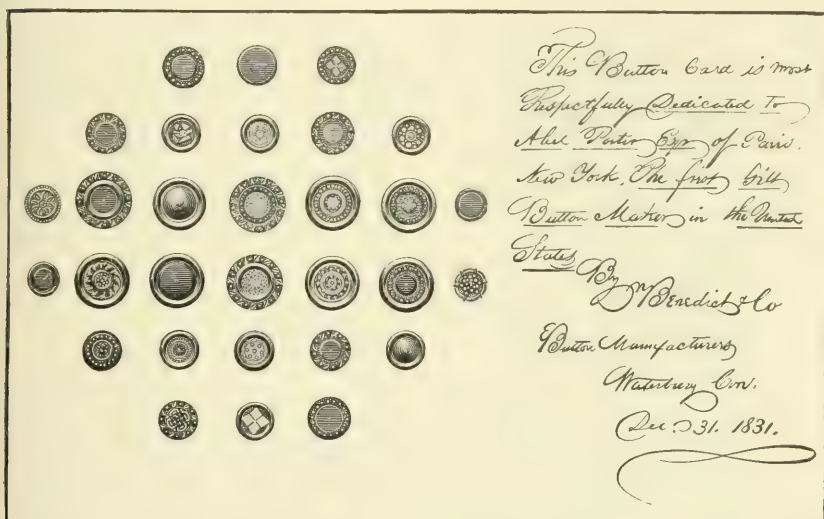 This Button Card is most
Respectfully Dedicated To
Abel Porter Esqr of Paris.
New York. The first Gilt
Button Maker in the United
States
By
Benedict & Co
Button Manufacturers
Waterbury Con.
Dec. 31. 1831.